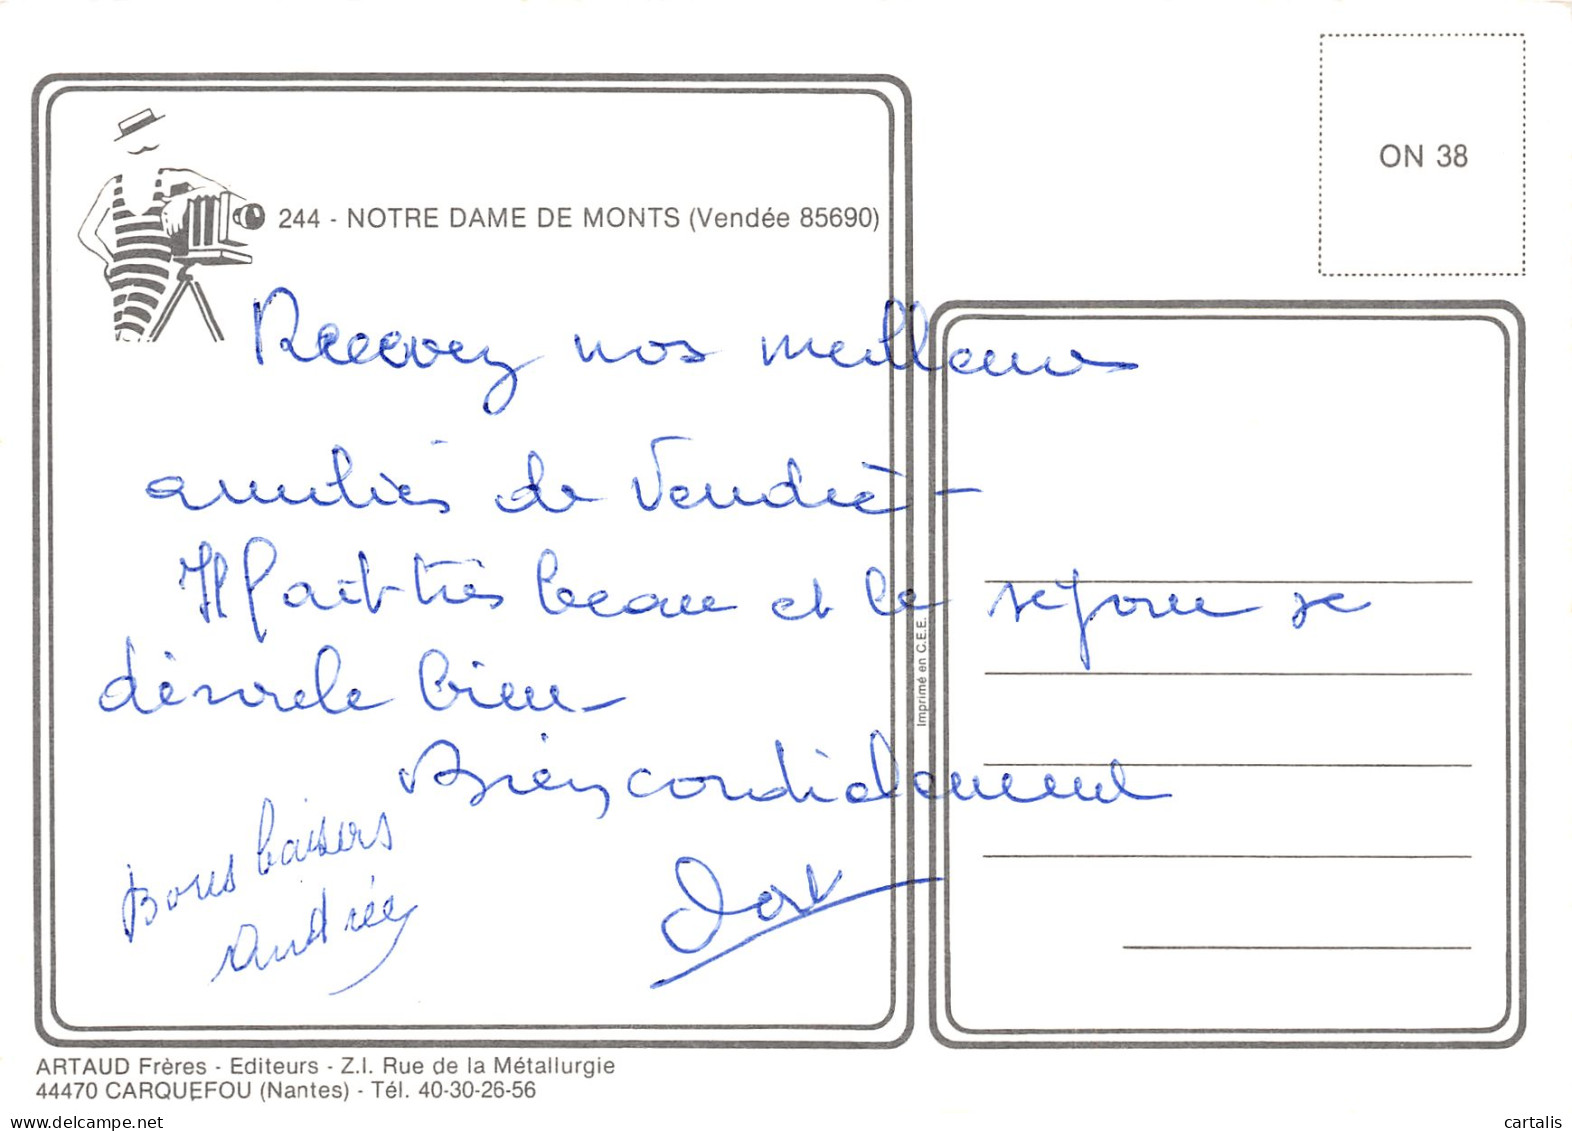 ON 38
244 - NOTRE DAME DE MONTS (Vendée 85690)
Recevez nos meilleures
amitiés de Vendée -
Il fait très beau et le séjour se
déroule bien -
Bien cordialement
Bons baisers
Andrée
Imprimé en C.E.E.
ARTAUD Frères - Editeurs - Z.I. Rue de la Métallurgie
44470 CARQUEFOU (Nantes) - Tél. 40-30-26-56
delcampe.net
cartalis